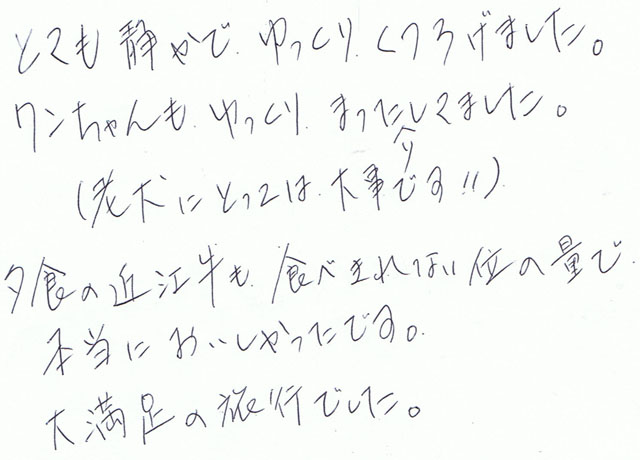 とても静かで ゆっくり くつろげました。
ワンちゃんも ゆっくり まったりしてました。
(老犬にとっては 大事です!!)
夕食の近江牛も 食べきれない位の量で
本当に おいしかったです。
大満足の旅行でした。